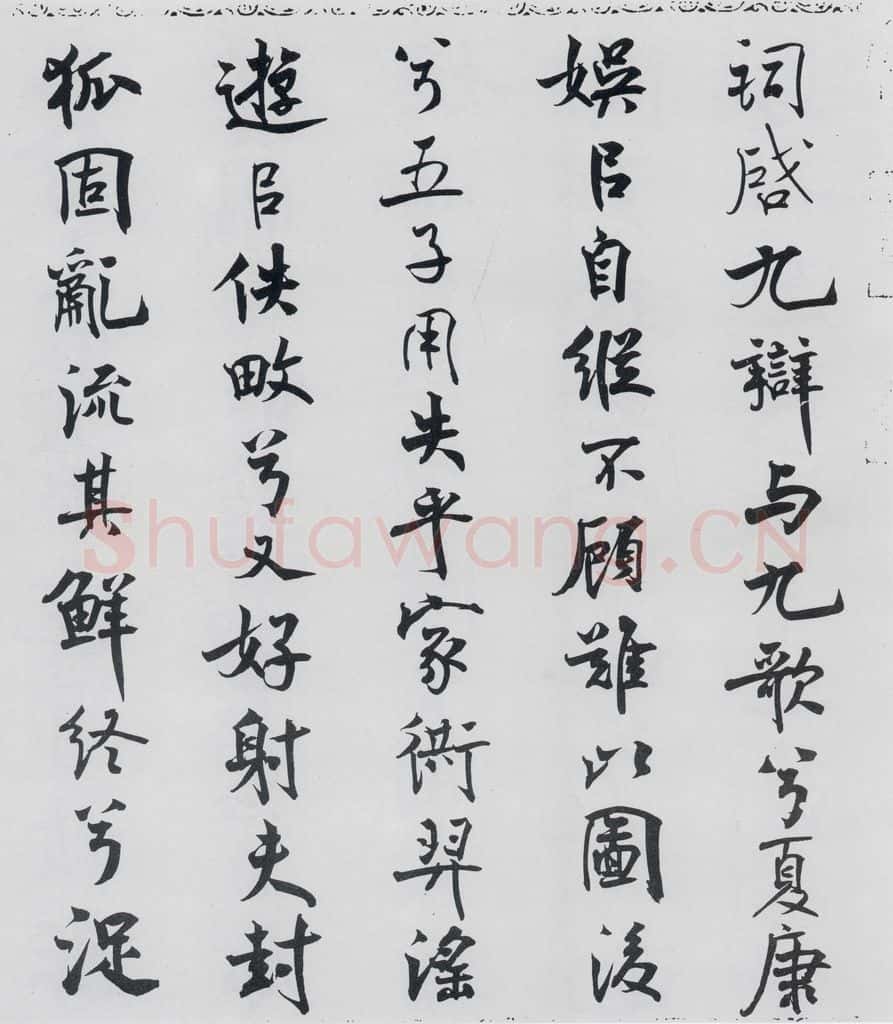 词启九辩与九歌兮夏康
娱㠯自纵不顾難以圖後
兮五子用失乎家衖羿滛
遊㠯佚畋兮又好射夫封
狐固亂流其鮮终兮浞
Shufawang.CN